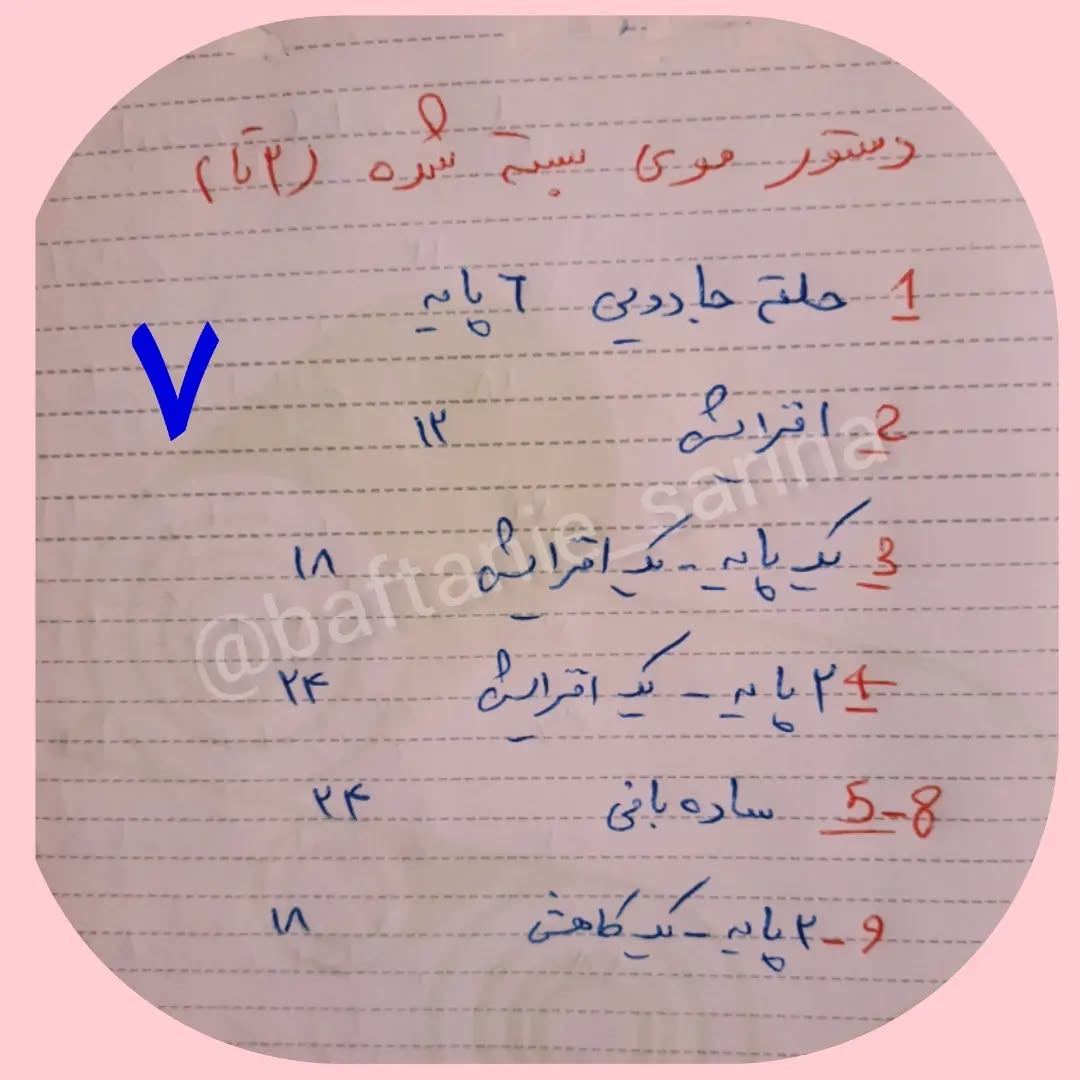 دستور موی بسته شده (۲تا)
1 حلقه جادویی 6 پایه
2 افزایش ۱۲
3 یک پایه - یک افزایش ۱۸
4 ۲ پایه - یک افزایش ۲۴
5-8 ساده بافی ۲۴
9- ۲ پایه - یک کاهش ۱۸
۷
@baftanie_sarina